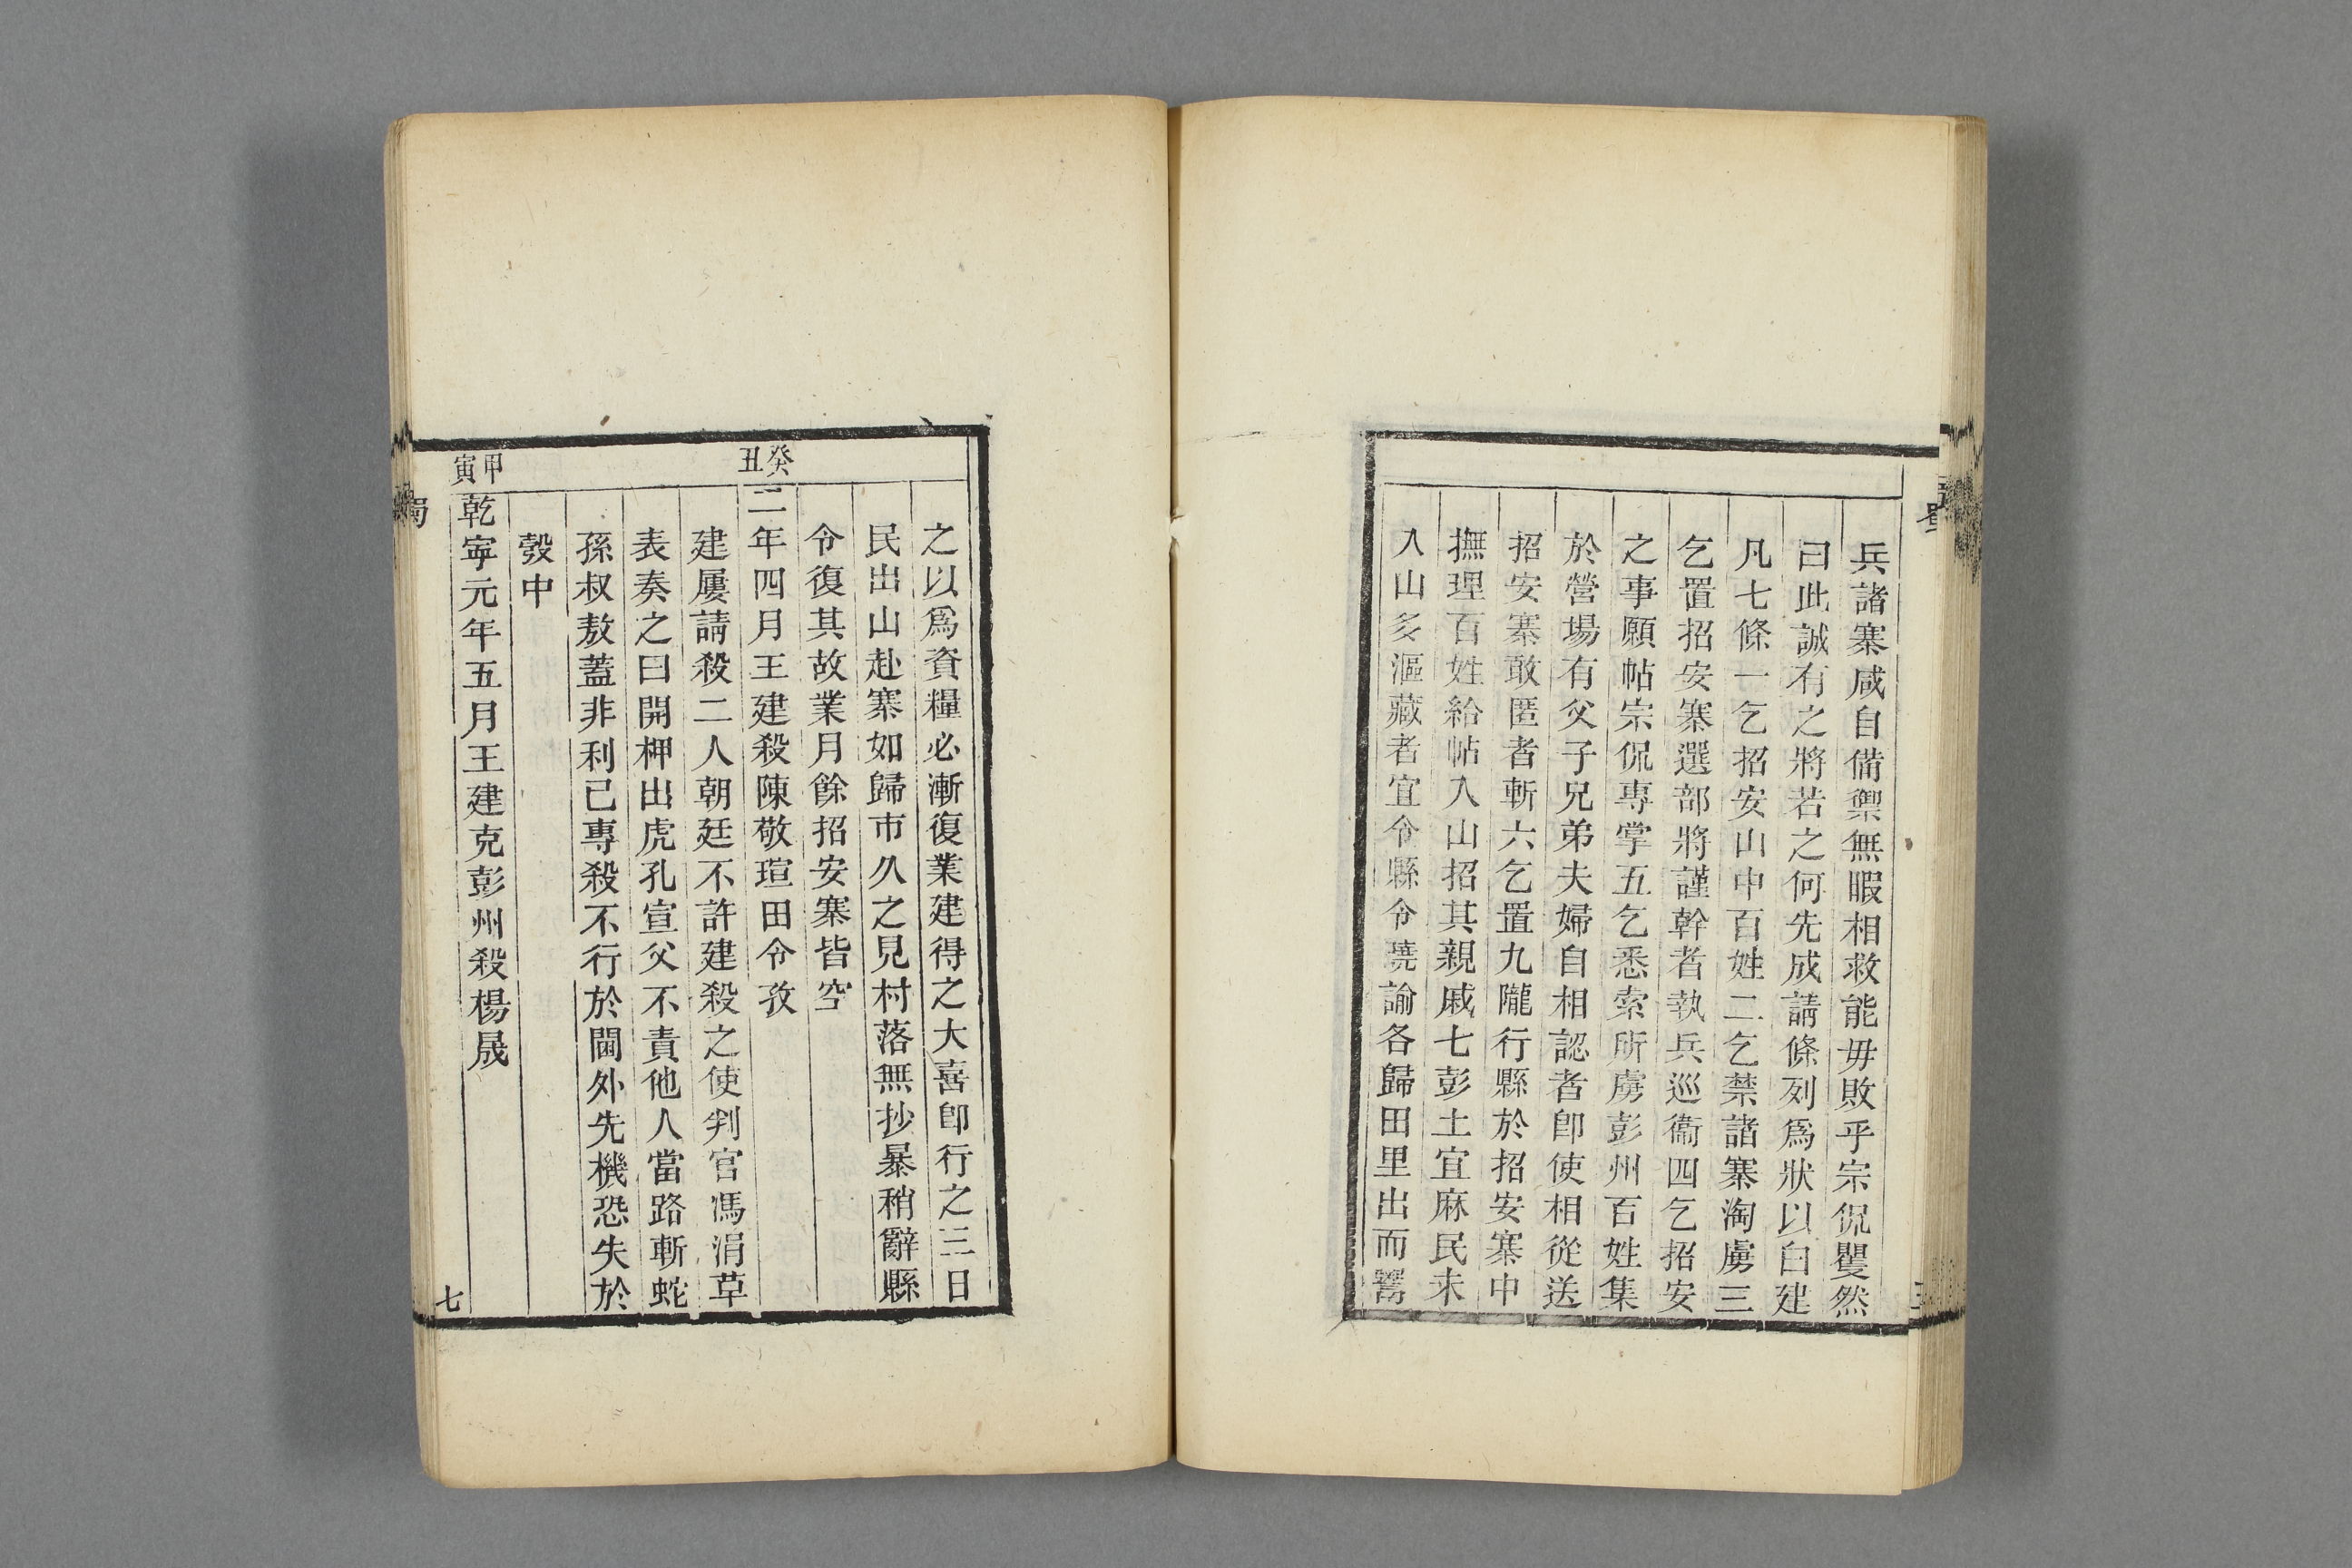 兵諸寨咸自備禦無暇相救能毋敗乎宗侃矍然
曰此誠有之將若之何先成請條列爲狀以白建
凡七條一乞招安山中百姓二乞禁諸寨淘虜三
乞置招安寨選部將謹幹者執兵巡衞四乞招安
之事願帖宗侃專掌五乞悉索所虜彭州百姓集
於營場有父子兄弟夫婦自相認者卽使相從送
招安寨敢匿者斬六乞置九隴行縣於招安寨中
撫理百姓給帖入山招其親戚七彭土宜麻民未
入山多漚藏者宜令縣令曉諭各歸田里出而鬻
之以爲資糧必漸復業建得之大喜卽行之三日
民出山赴寨如歸市久之見村落無抄暴稍辭縣
令復其故業月餘招安寨皆空
癸丑
二年四月王建殺陳敬瑄田令孜
建屢請殺二人朝廷不許建殺之使判官馮涓草
表奏之曰開柙出虎孔宣父不責他人當路斬蛇
孫叔敖蓋非利己專殺不行於閫外先機恐失於
彀中
甲寅
乾寕元年五月王建克彭州殺楊晟
七